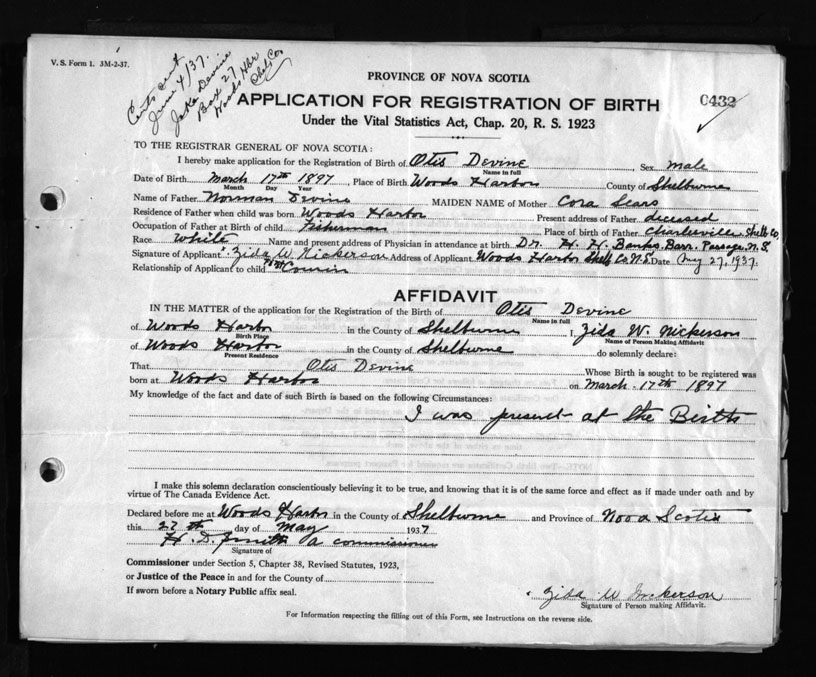 V. S. Form 1. 3M-2-37.
Certs sent
June 4/37.
Jake Devine
Box 27
Woods Hbr
Shel. Co
PROVINCE OF NOVA SCOTIA
APPLICATION FOR REGISTRATION OF BIRTH
0432
Under the Vital Statistics Act, Chap. 20, R. S. 1923
TO THE REGISTRAR GENERAL OF NOVA SCOTIA:
I hereby make application for the Registration of Birth of Otis Devine, Sex male
Name in full
Date of Birth March 17th 1897, Place of Birth Woods Harbor County of Shelburne
Month Day Year
Name of Father Norman Devine MAIDEN NAME of Mother Cora Sears
Residence of Father when child was born Woods Harbor Present address of Father deceased
Occupation of Father at Birth of child Fisherman Place of birth of Father Charlesville Shelb Co,
Race White Name and present address of Physician in attendance at birth Dr. H. H. Banks, Barr. Passage. N. S.
Signature of Applicant Zida W Nickerson Address of Applicant Woods Harbor Shelb Co. N.S. Date May 27, 1937.
Relationship of Applicant to child Cousin
AFFIDAVIT
IN THE MATTER of the application for the Registration of the Birth of Otis Devine
Name in full
of Woods Harbor in the County of Shelburne I, Zida W. Nickerson
Birth Place Name of Person Making Affidavit
of Woods Harbor in the County of Shelburne do solemnly declare:
Present Residence
That Otis Devine Whose Birth is sought to be registered was
born at Woods Harbor on March. 17th 1897
My knowledge of the fact and date of such Birth is based on the following Circumstances:
I was present at the Birth
I make this solemn declaration conscientiously believing it to be true, and knowing that it is of the same force and effect as if made under oath and by
virtue of The Canada Evidence Act.
Declared before me at Woods Harbor in the County of Shelburne and Province of Nova Scotia
this 27th day of May 1937
H. D. Smith a commissioner
Signature of
Commissioner under Section 5, Chapter 38, Revised Statutes, 1923,
or Justice of the Peace in and for the County of
If sworn before a Notary Public affix seal.
Zida W Nickerson
Signature of Person making Affidavit.
For Information respecting the filling out of this Form, see Instructions on the reverse side.